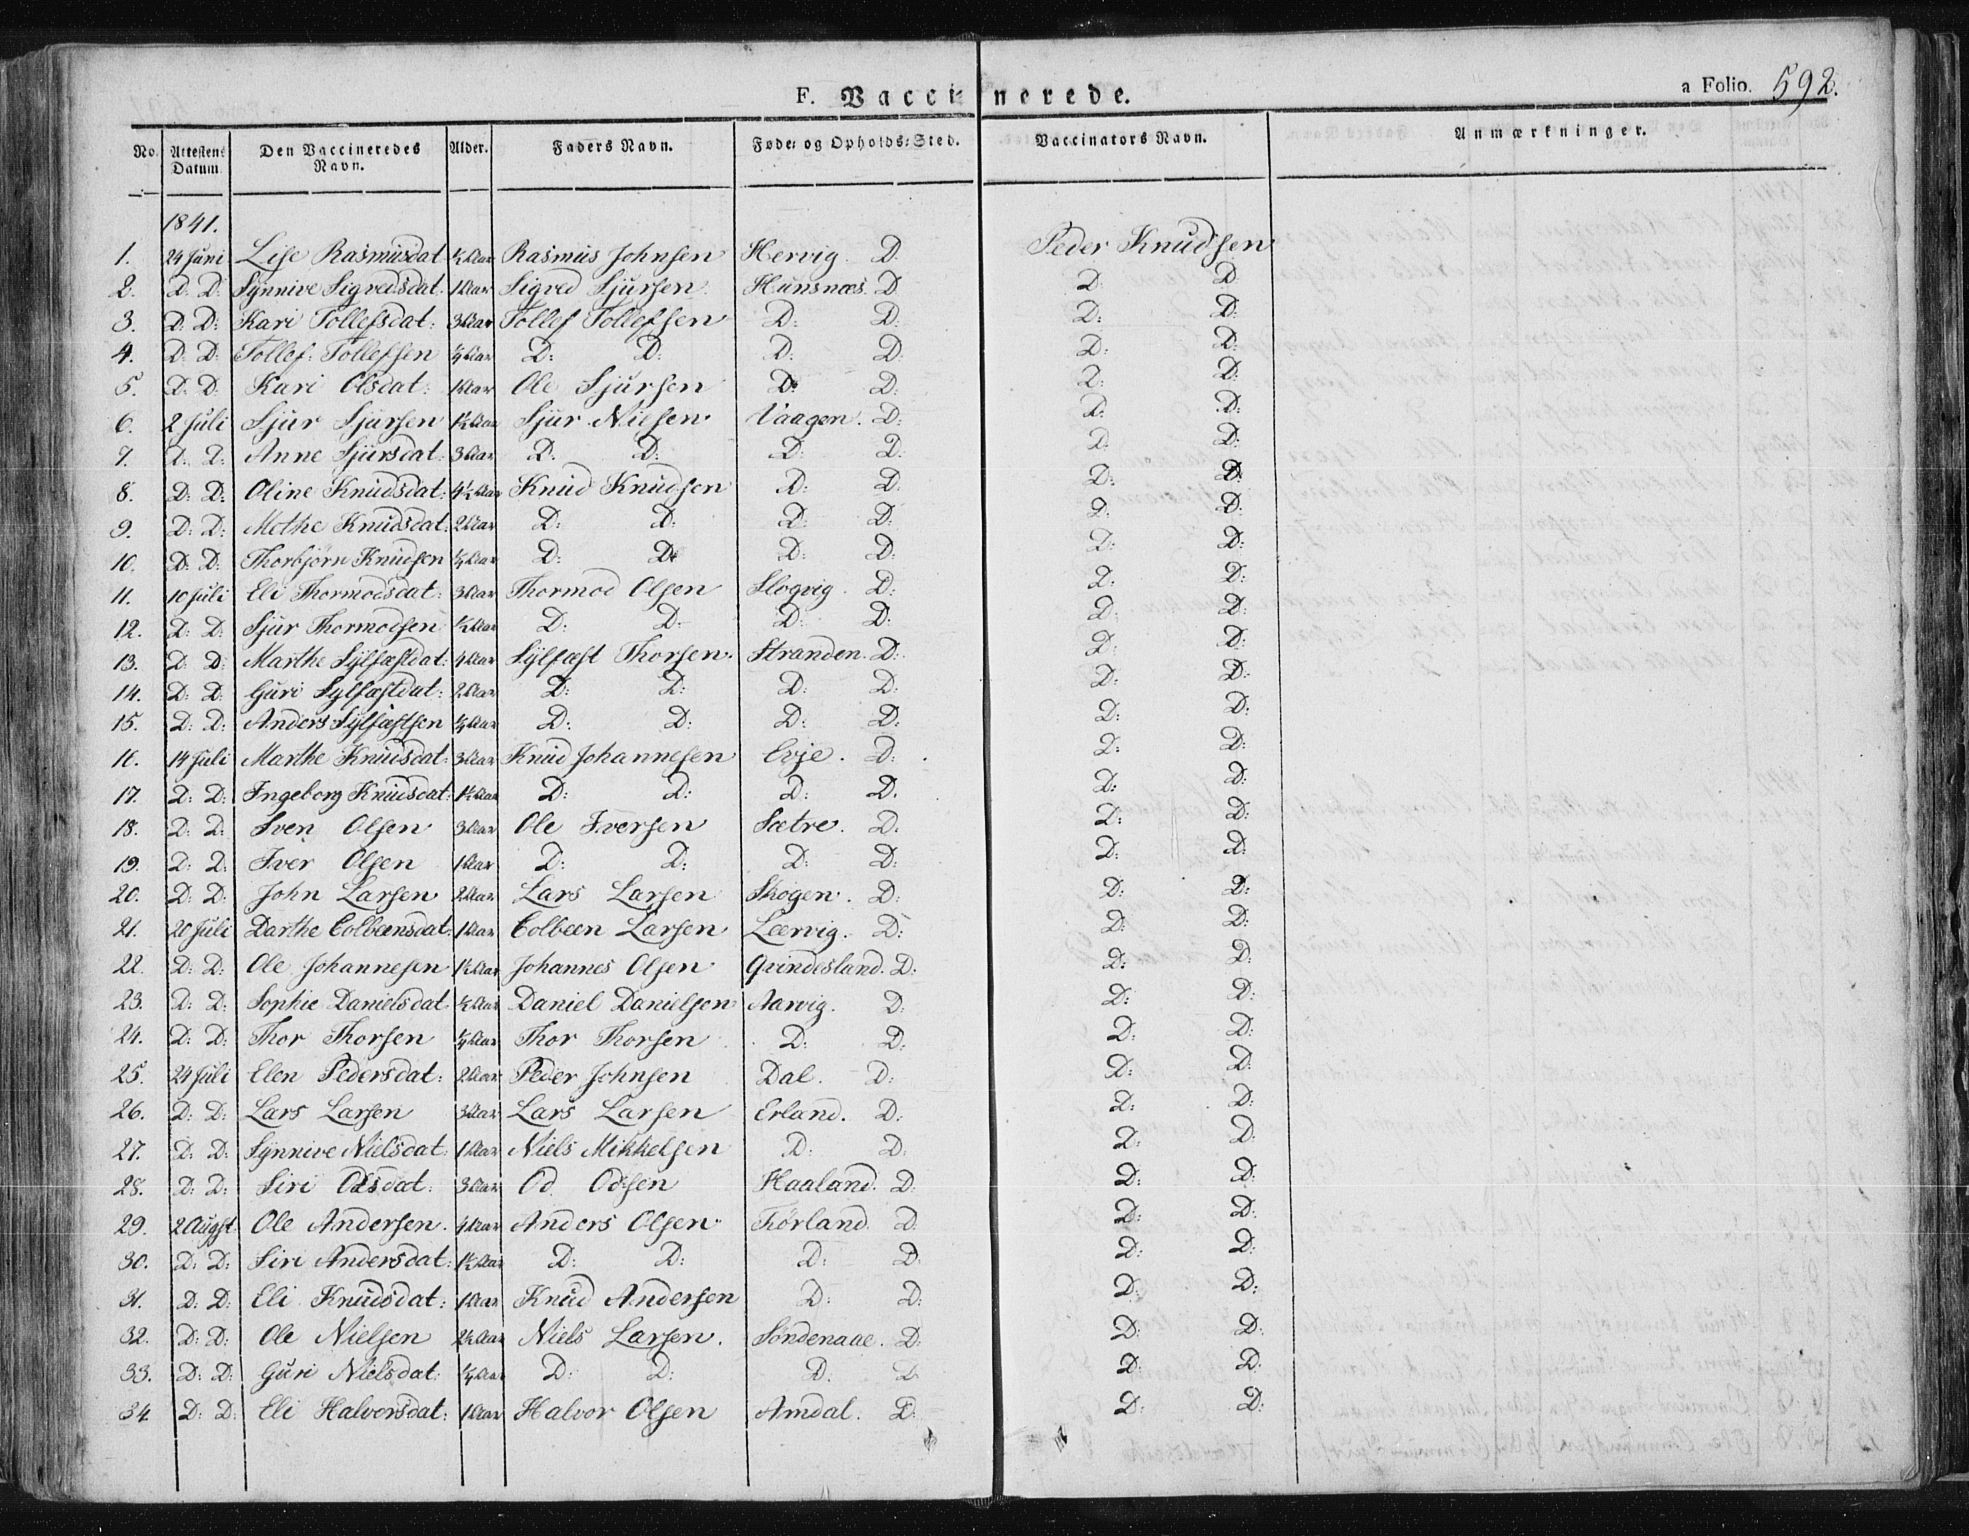 F. Vaccinerede. a Folio. 592.
No. Attestens Datum. Den Vaccineredes Navn. Alder. Faders Navn. Føde= og Opholds=Sted. Vaccinators Navn. Anmærkninger.
1841.
1. 24 Juni Lise Rasmusdat ½ Aar Rasmus Johnsen Hervig. D. Peder Knudsen
2. D. D. Synnive Sigvedsdat. 1 Aar Sigved Sjursen Hunsnæs. D D. D
3. D: D: Kari Tollefsdat: 3 Aar Tollef Tollefsen D: D: D: D:
4. D: D: Tollef Tollefsen ¼ Aar D: D: D: D: D: D:
5. D: D: Kari Olsdat: 1 Aar Ole Sjursen D: D: D: D:
6. 2 Juli Sjur Sjursen 1½ Aar Sjur Nilsen Vaagen. D: D: D:
7. D: D: Anne Sjursdat: 3 Aar D: D: D: D: D: D:
8. D: D: Oline Knudsdat: 4½ Aar Knud Knudsen D: D: D: D:
9. D: D: Mothe Knudsdat: 2 Aar D: D: D: D: D: D:
10. D: D: Thorbjørn Knudsen ¼ Aar D: D: D: D: D: D:
11. 10 Juli Eli Thormodsdat: 3 Aar Thormod Olsen Slogvig. D: D: D:
12. D: D: Sjur Thormodsen ½ Aar D: D: D: D: D: D:
13. D. D: Marthe Sylfæstdat: 4 Aar Sylfæst Thorsen. Stranden. D: D: D:
14. D: D: Guri Sylfæstdat: 2 Aar D: D: D: D: D: D:
15. D: D: Anders Sylfæstsen ¼ Aar D: D: D: D: D: D:
16. 14 Juli Marthe Knudsdat: 3 Aar Knud Johannesen Evje. D: D: D:
17. D: D: Ingeborg Knudsdat: 1½ Aar D: D: D: D. D: D:
18. D: D: Iven Olsen 3 Aar Ole Iversen Sætre. D. D: D:
19. D: D: Iver Olsen 1 Aar D: D: D: D: D: D:
20. D: D: John Larsen 2 Aar Lars Larsen Skogen. D: D: D:
21. 20 Juli Darthe Colbeensdat: 1 Aar Colbeen Larsen Lærvig. D: D: D:
22. D: D: Ole Johannesen 1½ Aar Johannes Olsen Qvindesland. D: D: D:
23. D: D: Sophie Danielsdat ½ Aar Daniel Danielsen Aarvig. D: D: D:
24. D: D: Thor Thorsen ¼ Aar Thor Thorsen D: D: D: D:
25. 24 Juli Elen Pedersdat: 2 Aar Peder Johnsen Dal. D: D: D:
26. D: D: Lars Larsen 3 Aar Lars Larsen Erland. D: D: D:
27. D: D: Synnive Nielsdat: 1 Aar Niels Mikkelsen D: D: D: D:
28. D: D: Siri Odsdat: 3 Aar Od Odsen Haaland. D: D: D:
29. 2 Augst. Ole Andersen. 4 Aar Anders Olsen Førland. D D: D:
30. D: D: Siri Andersdat: 1½ Aar D: D: D: D: D: D:
31. D: D: Eli Knudsdat: 1 Aar Knud Andersen D: D: D: D:
32. D: D: Ole Nielsen 2½ Aar Niels Larsen. Søndenaae. D: D: D:
33. D: D: Guri Nielsdat: ¼ Aar D: D: D: D: D: D:
34. D: D: Eli Halvorsdat: 1 Aar Halvor Olsen Amdal. D: D: D: